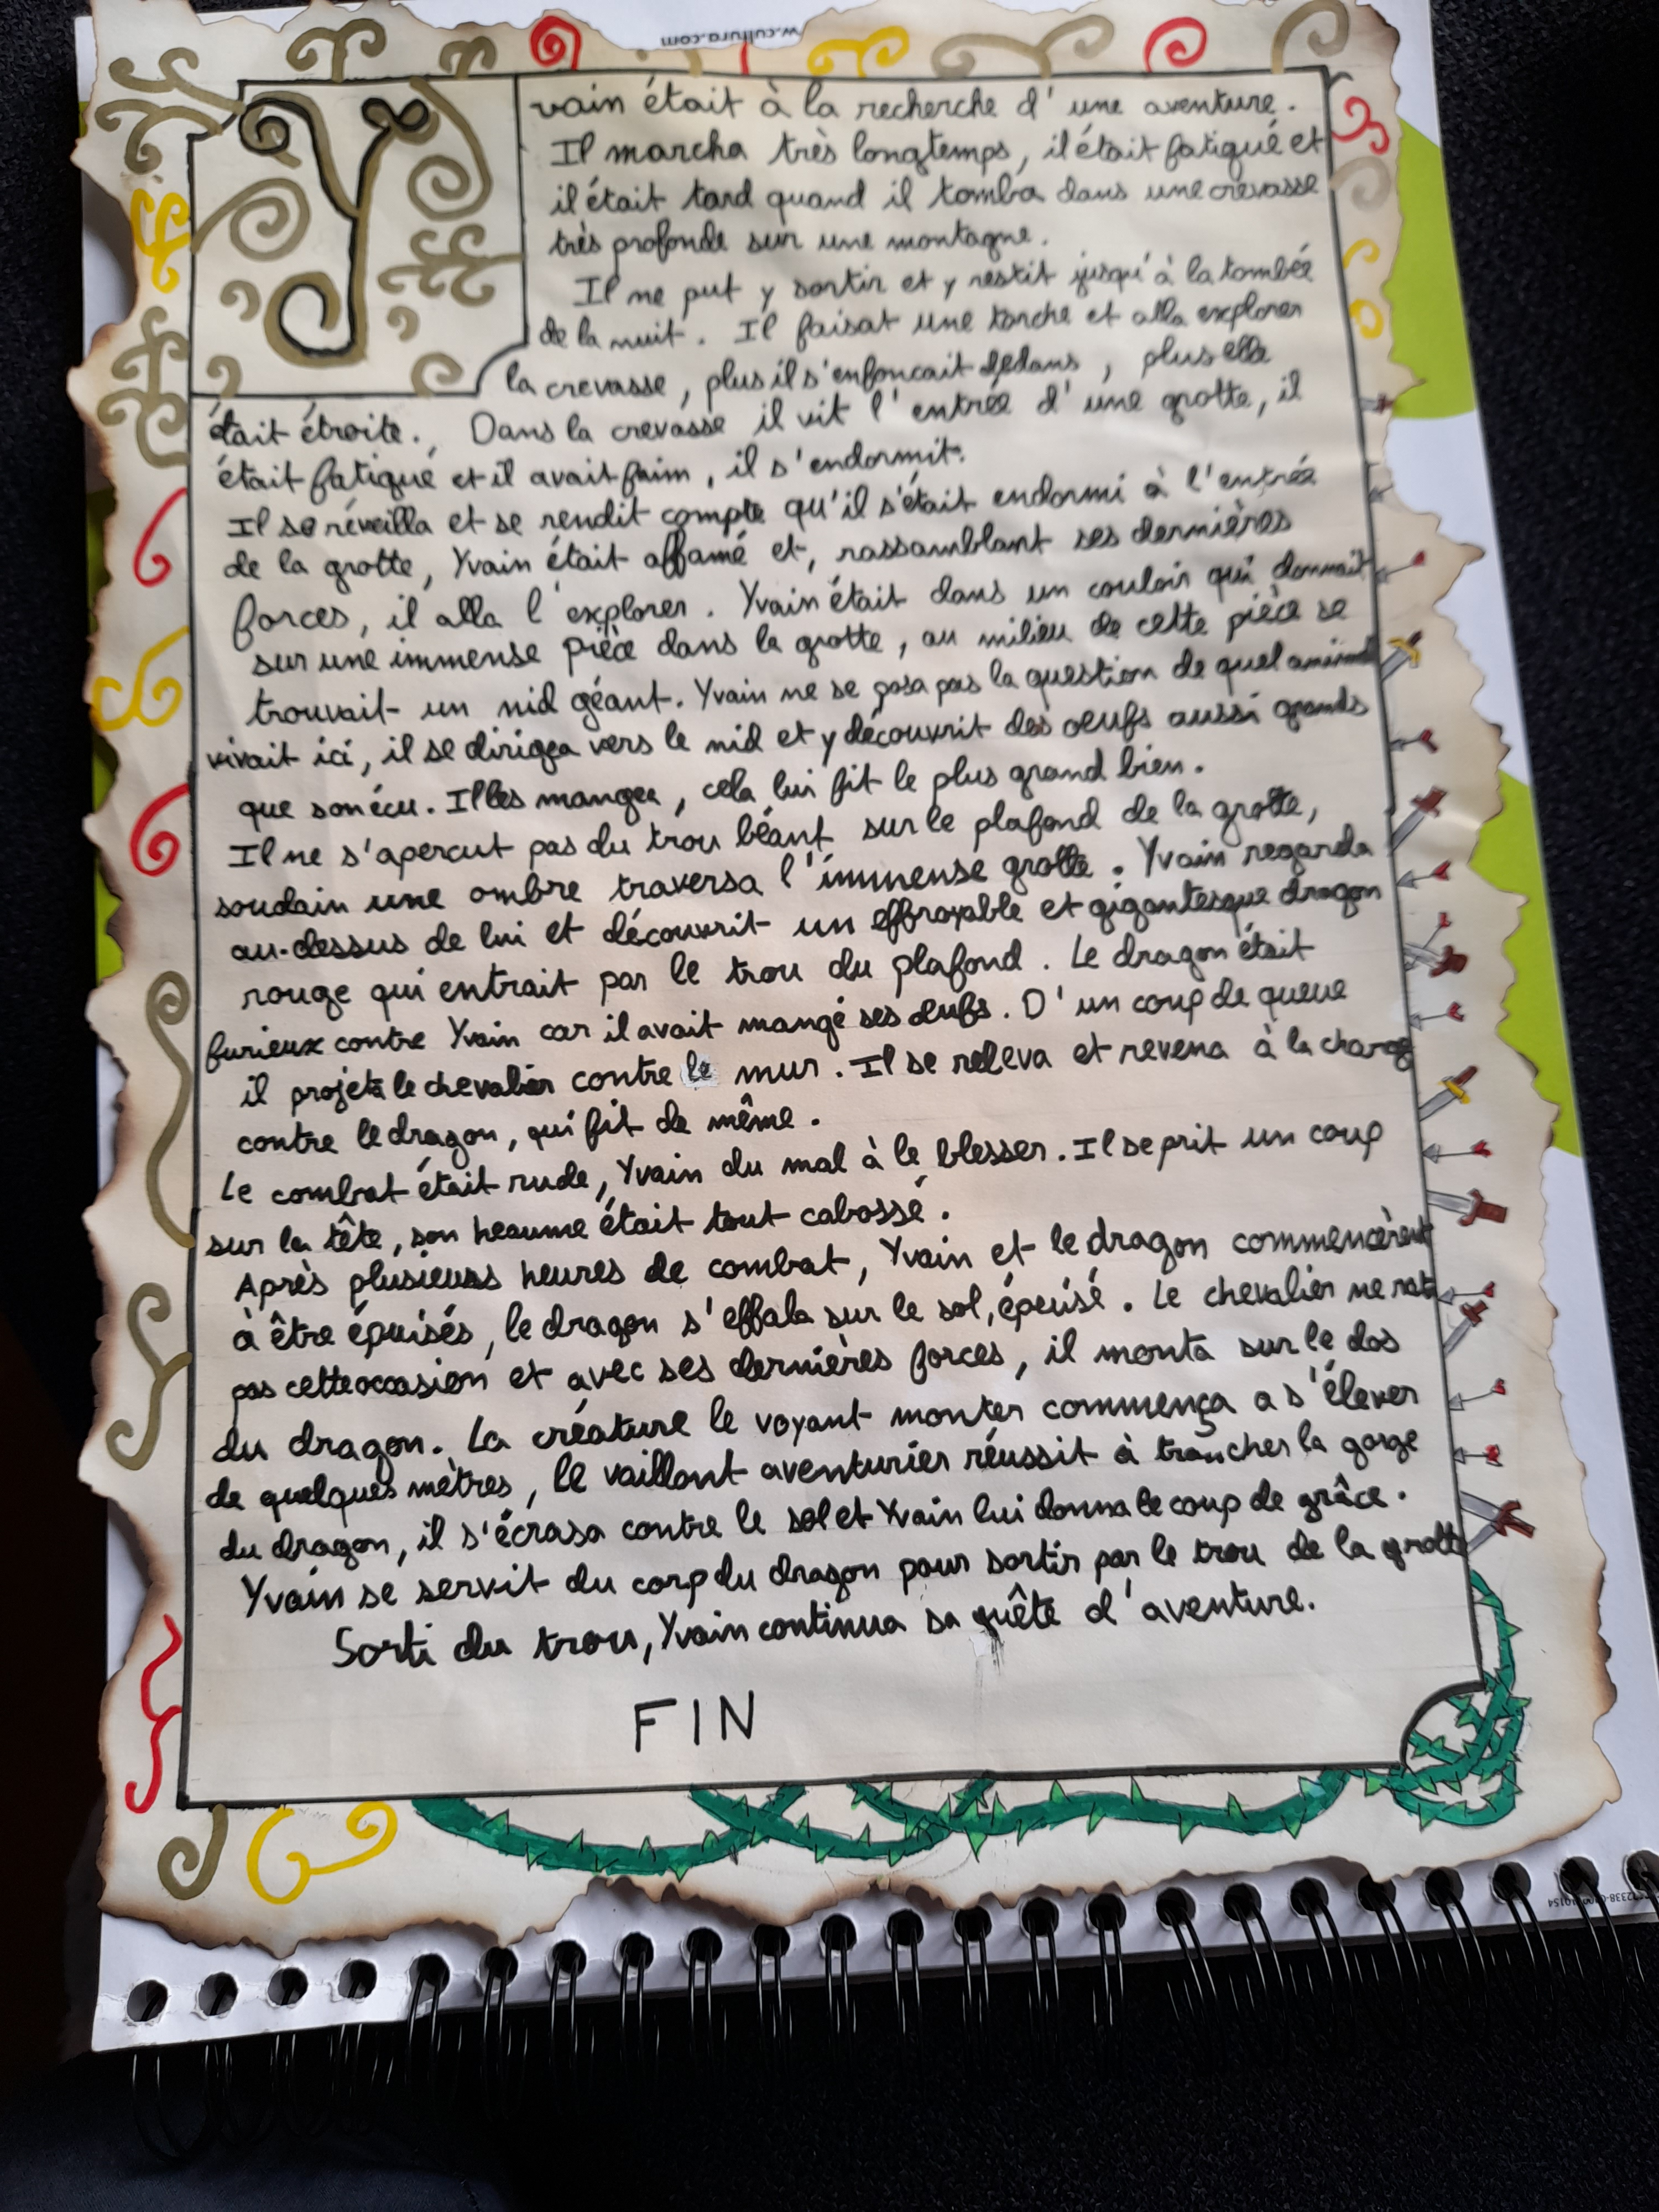 w.cultura.com
Yvain était à la recherche d'une aventure.
Il marcha très longtemps, il était fatigué et
il était tard quand il tomba dans une crevasse
très profonde sur une montagne.
Il ne put y sortir et y restit jusqu'à la tombée
de la nuit. Il faisat une torche et alla explorer
la crevasse, plus il s'enfoncait dedans, plus elle
était étroite. Dans la crevasse il vit l'entrée d'une grotte, il
était fatigué et il avait faim, il s'endormit.
Il se réveilla et se rendit compte qu'il s'était endormi à l'entrée
de la grotte, Yvain était affamé et, rassamblant ses dernières
forces, il alla l'explorer. Yvain était dans un couloir qui donnait
sur une immense pièce dans la grotte, au milieu de cette pièce se
trouvait un nid géant. Yvain ne se posa pas la question de quel animal
vivait ici, il se dirigea vers le nid et y découvrit des oeufs aussi grands
que son écu. Il les mangea, cela lui fit le plus grand bien.
Il ne s'apercut pas du trou béant sur le plafond de la grotte,
soudain une ombre traversa l'immense grotte. Yvain regarda
au-dessus de lui et découvrit un effroyable et gigantesque dragon
rouge qui entrait par le trou du plafond. Le dragon était
furieux contre Yvain car il avait mangé ses œufs. D'un coup de queue
il projeta le chevalier contre le mur. Il se releva et revena à la charge
contre le dragon, qui fit de même.
Le combat était rude, Yvain du mal à le blesser. Il se prit un coup
sur la tête, son heaume était tout cabossé.
Après plusieurs heures de combat, Yvain et le dragon commencèrent
à être épuisés, le dragon s'effala sur le sol, épeusé. Le chevalier ne rata
pas cette occasion et avec ses dernières forces, il monta sur le dos
du dragon. La créature le voyant monter commença a s'élever
de quelques mètres, le vaillant aventurier réussit à trancher la gorge
du dragon, il s'écrasa contre le sol et Yvain lui donna le coup de grâce.
Yvain se servit du corp du dragon pour sortir par le trou de la grotte
Sorti du trou, Yvain continua sa quête d'aventure.
FIN